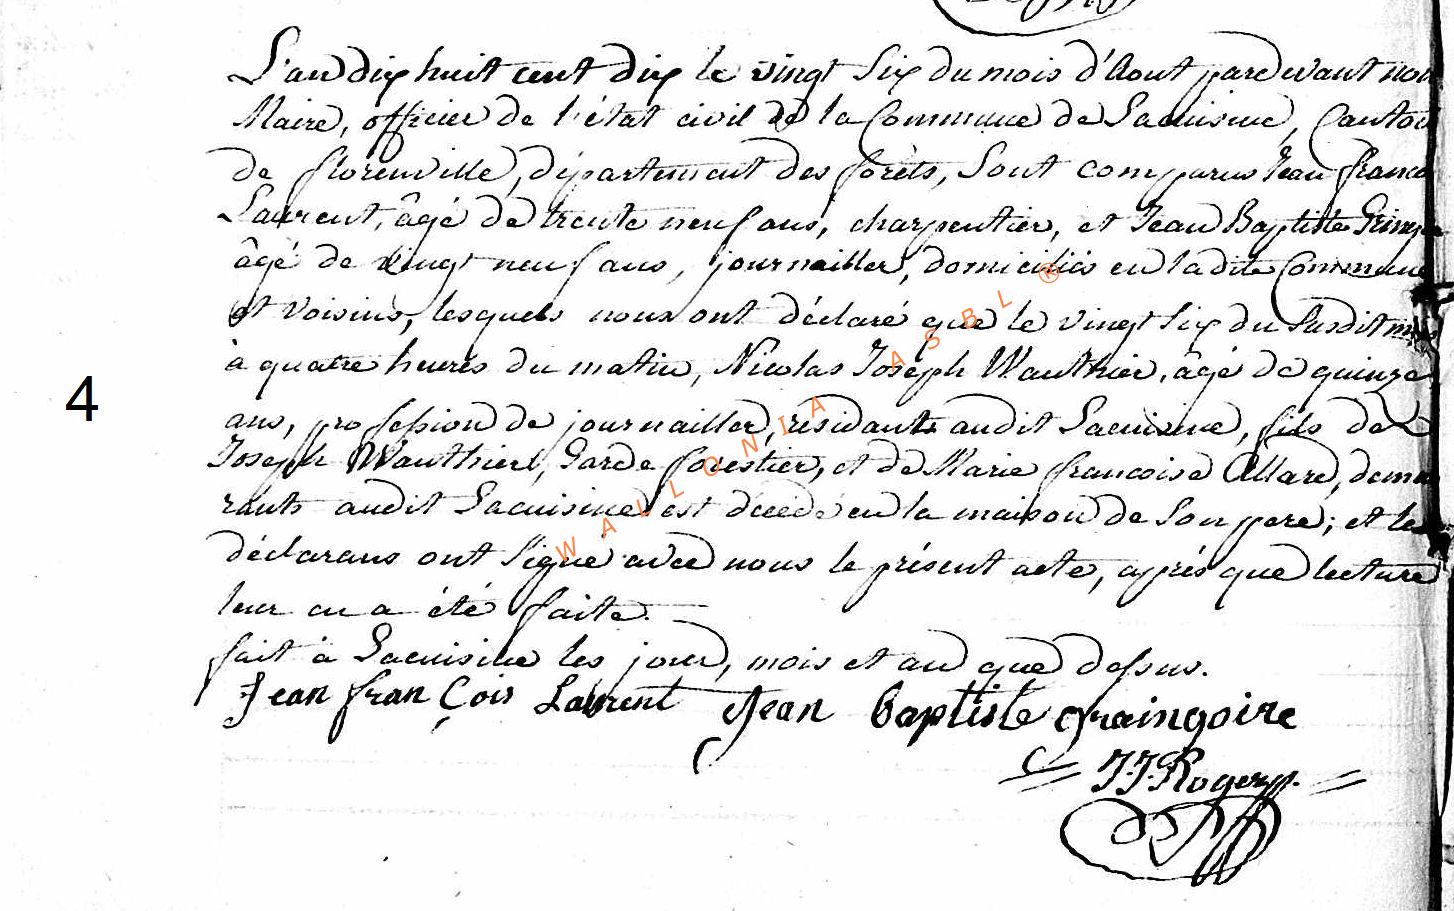 L'an dix huit cent dix le vingt six du mois d'Aout pardevant nou
Maire, officier de l'état civil de la Commune de Lacuisine, Canton
de florenville, département des forêts, Sont comparus Jean franco
Laurent, âgé de trente neuf ans, charpentier, et Jean Baptiste
âgé de vingt neuf ans, journailler, domiciliés en ladite Commune
et Voisins, lesquels nous ont déclaré que le vingt Six du Susdit mois
à quatre heures du matin, Nicolas Joseph Wauthier, âgé de quinze
ans, profession de journailler, résidant audit Lacuisine, fils de
Joseph Wauthier, Garde forestier, et de Marie francoise Allard, demeu
rants audit Lacuisine est décédé en la maison de Son pere; et les
déclarans ont Signé avec nous le présent acte, après que lecture
leur en a été faite.
fait à Lacuisine les jour, mois et an que dessus.
Jean fran Çois Laurent Jean baptiste graingoire
J.J. Roger
4
WALLONIA ASBL ®